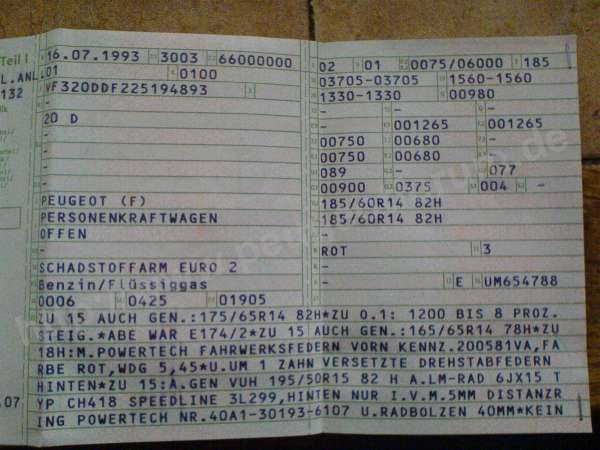 Teil I
16.07.1993 3003 66000000
L.ANL. 01 0100
132 VF32ODDF225194893
-
20 D
-
-
-
-
PEUGEOT (F)
PERSONENKRAFTWAGEN
OFFEN
-
SCHADSTOFFARM EURO 2
Benzin/Flüssiggas
0006 0425 01905
02 01 0075/06000 185
03705-03705 1560-1560
1330-1330 00980
- -
- 001265 001265
00750 00680 -
00750 00680 -
089 - 077
00900 0375 004 -
185/60R14 82H
185/60R14 82H
-
ROT 3
-
- E UM654788
ZU 15 AUCH GEN.:175/65R14 82H*ZU 0.1: 1200 BIS 8 PROZ.
STEIG.*ABE WAR E174/2*ZU 15 AUCH GEN.:165/65R14 78H*ZU
18H:M.POWERTECH FAHRWERKSFEDERN VORN KENNZ.200581VA,FA
RBE ROT,WDG 5,45*U.UM 1 ZAHN VERSETZTE DREHSTABFEDERN
HINTEN*ZU 15:A.GEN VUH 195/50R15 82 H A.LM-RAD 6JX15 T
.07 YP CH418 SPEEDLINE 3L299,HINTEN NUR I.V.M.5MM DISTANZR
ING POWERTECH NR.40A1-30193-6107 U.RADBOLZEN 40MM*KEIN